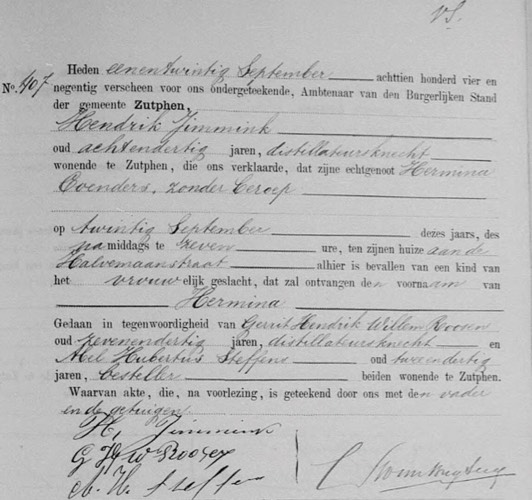 vS.
Heden eenentwintig September achttien honderd vier en
No. 407 negentig verscheen voor ons ondergeteekende, Ambtenaar van den Burgerlijken Stand
der gemeente Zutphen,
Hendrik Jimmink
oud achtendertig jaren, distillateursknecht
wonende te Zutphen, die ons verklaarde, dat zijne echtgenoot Hermina
Ovenders, zonder beroep
op twintig September dezes jaars, des
na middags te zeven ure, ten zijnen huize aan de
Halvemaanstraat alhier is bevallen van een kind van
het vrouwelijk geslacht, dat zal ontvangen den voornaam van
Hermina
Gedaan in tegenwoordigheid van Gerrit Hendrik Willem Roosen
oud zevenendertig jaren, distillateursknecht en
Abel Hubertus Steffens oud tweeendertig
jaren, besteller beiden wonende te Zutphen.
Waarvan akte, die, na voorlezing, is geteekend door ons met den vader
en de getuigen
H. Jimmink
G H W Roosen
A. H. Steffens